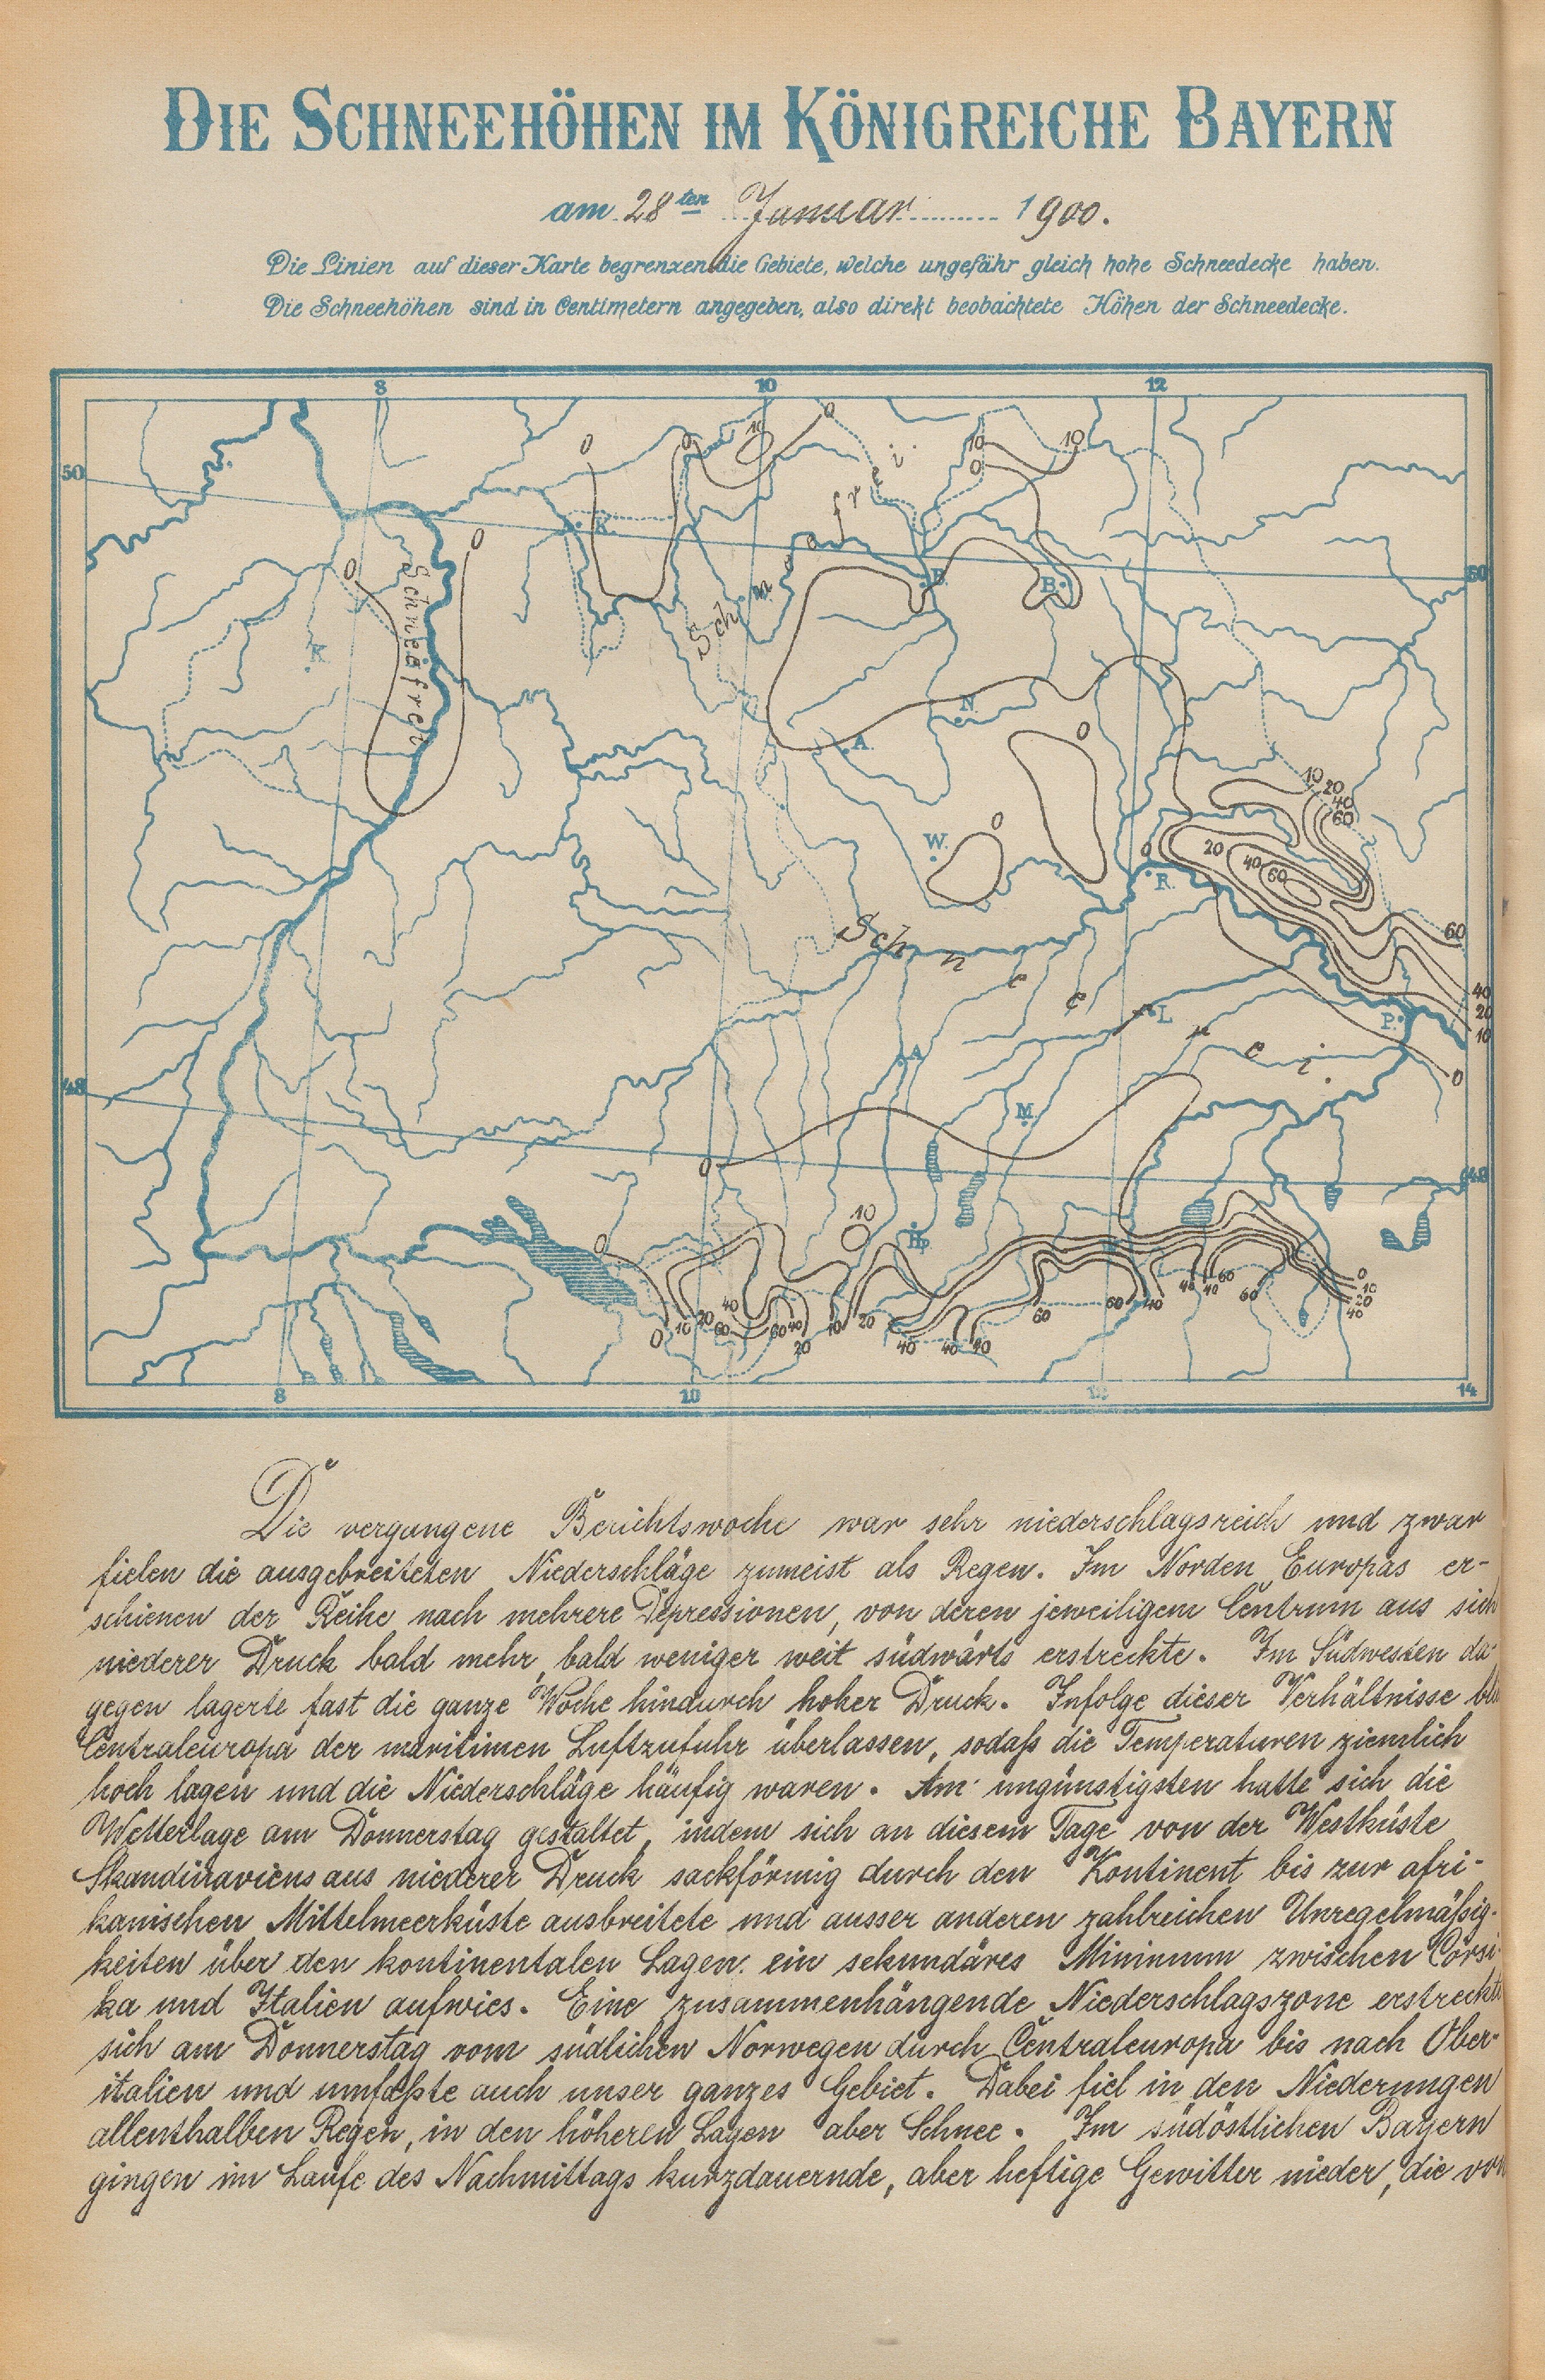 DIE SCHNEEHÖHEN IM KÖNIGREICHE BAYERN
am 28ten Januar 1900.
Die Linien auf dieser Karte begrenzen die Gebiete, welche ungefähr gleich hohe Schneedecke haben.
Die Schneehöhen sind in Centimetern angegeben, also direkt beobachtete Höhen der Schneedecke.
8 10 12
50
0 0 10 0 10 10
0
K.
Schneefrei.
0
0
Schneefrei
50
B. B.
W.
K.
N.
0
A.
10 20
40
60
W. 0
0 20 40 60
R.
Schneefrei.
60
40
20
10
L. P.
A.
0
48
M.
0
48
10
Hp.
0
0 10 20 40 60 60 40 20 10 20 40 40 40 60 60 40 40 40 60 60 0 10 20 40
8 10 12 14
Die vergangene Berichtswoche war sehr niederschlagsreich und zwar
fielen die ausgebreiteten Niederschläge zumeist als Regen. Im Norden Europas er-
schienen der Reihe nach mehrere Depressionen, von deren jeweiligem Centrum aus sich
niederer Druck bald mehr, bald weniger weit südwärts erstreckte. Im Südwesten da-
gegen lagerte fast die ganze Woche hindurch hoher Druck. Infolge dieser Verhältnisse
Centraleuropa der maritimen Luftzufuhr überlassen, sodaß die Temperaturen ziemlich
hoch lagen und die Niederschläge häufig waren. Am ungünstigsten hatte sich die
Wetterlage am Donnerstag gestaltet, indem sich an diesem Tage von der Westküste
Skandinaviens aus niederer Druck sackförmig durch den Kontinent bis zur afri-
kanischen Mittelmeerküste ausbreitete und ausser anderen zahlreichen Unregelmäßig-
keiten über den kontinentalen Lagen ein sekundäres Minimum zwischen Corsi-
ka und Italien aufwies. Eine zusammenhängende Niederschlagszone erstreckte
sich am Donnerstag vom südlichen Norwegen durch Centraleuropa bis nach Ober-
italien und umfaßte auch unser ganzes Gebiet. Dabei fiel in den Niederungen
allenthalben Regen, in den höheren Lagen aber Schnee. Im südöstlichen Bayern
gingen im Laufe des Nachmittags kurzdauernde, aber heftige Gewitter nieder, die von